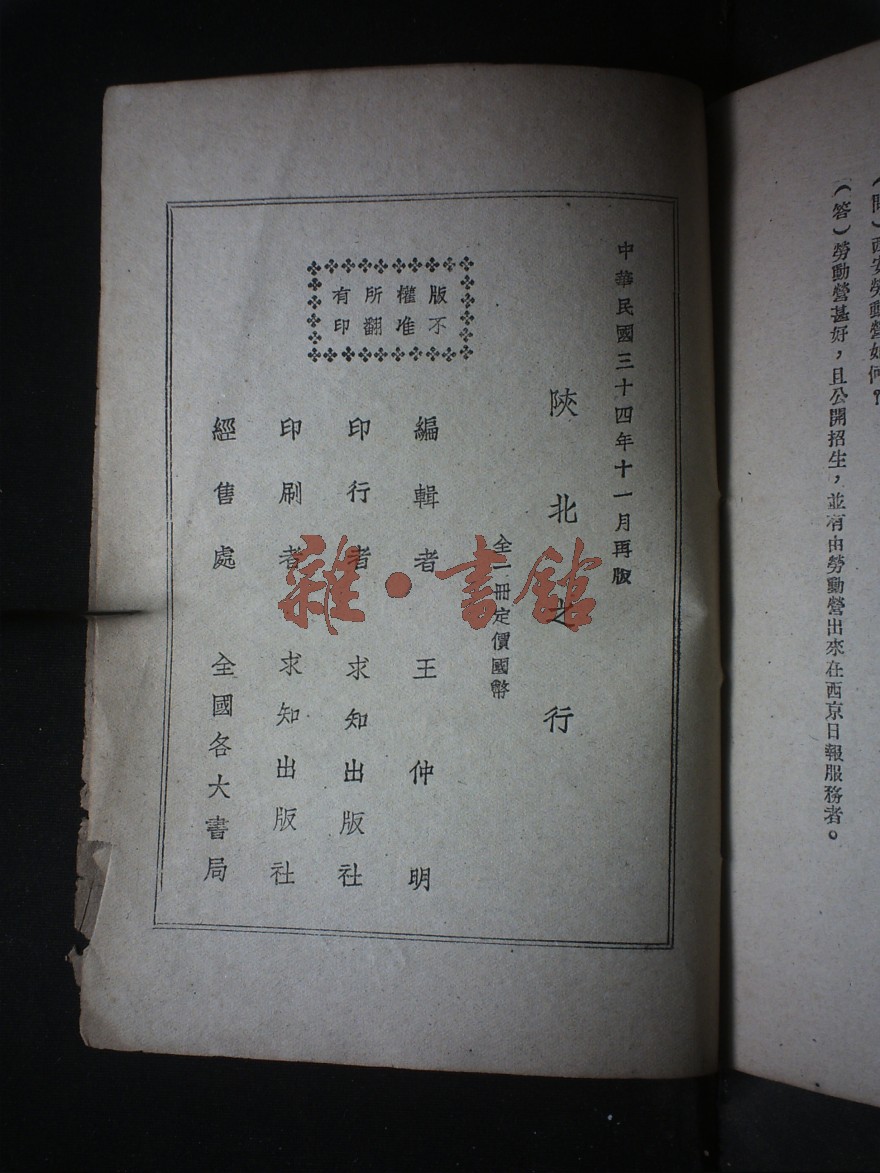 (問)西安勞動營如何?
(答)勞動營甚好,且公開招生,並有由勞動營出來在西京日報服務者。
中華民國三十四年十一月再版
陝北之行
全一冊定價國幣
版權所有
不准翻印
編輯者 王仲明
印行者 求知出版社
印刷者 求知出版社
經售處 全國各大書局
雜·書館